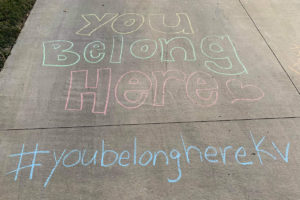 You
Belong
Here
#youbelonghereKV